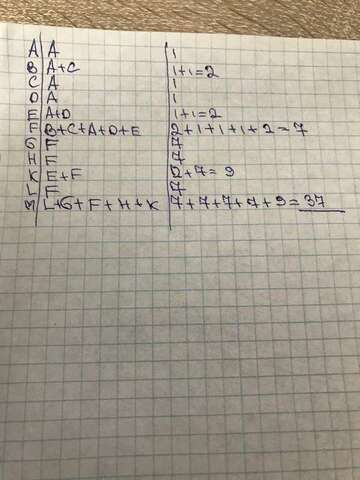 A A 1
B A+C 1+1=2
C A 1
D A 1
E A+D 1+1=2
F B+C+A+D+E 2+1+1+1+2=7
G F 7
H F 7
K E+F 2+7=9
L F 7
M L+G+F+H+K 7+7+7+7+9=37